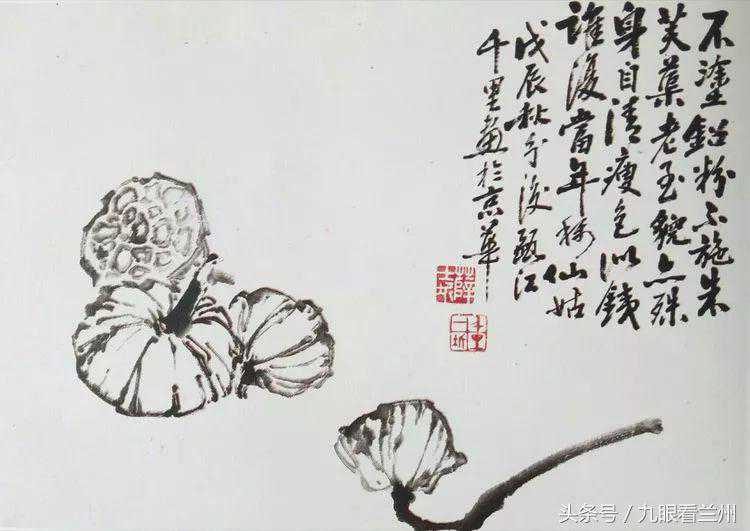 不塗鉛粉不施朱
芙蕖老至貌亦殊
身自清瘦色似鐵
誰復當年称仙姑
戊辰秋分後甌江
千里畫於京華
头条号／九眼看兰州